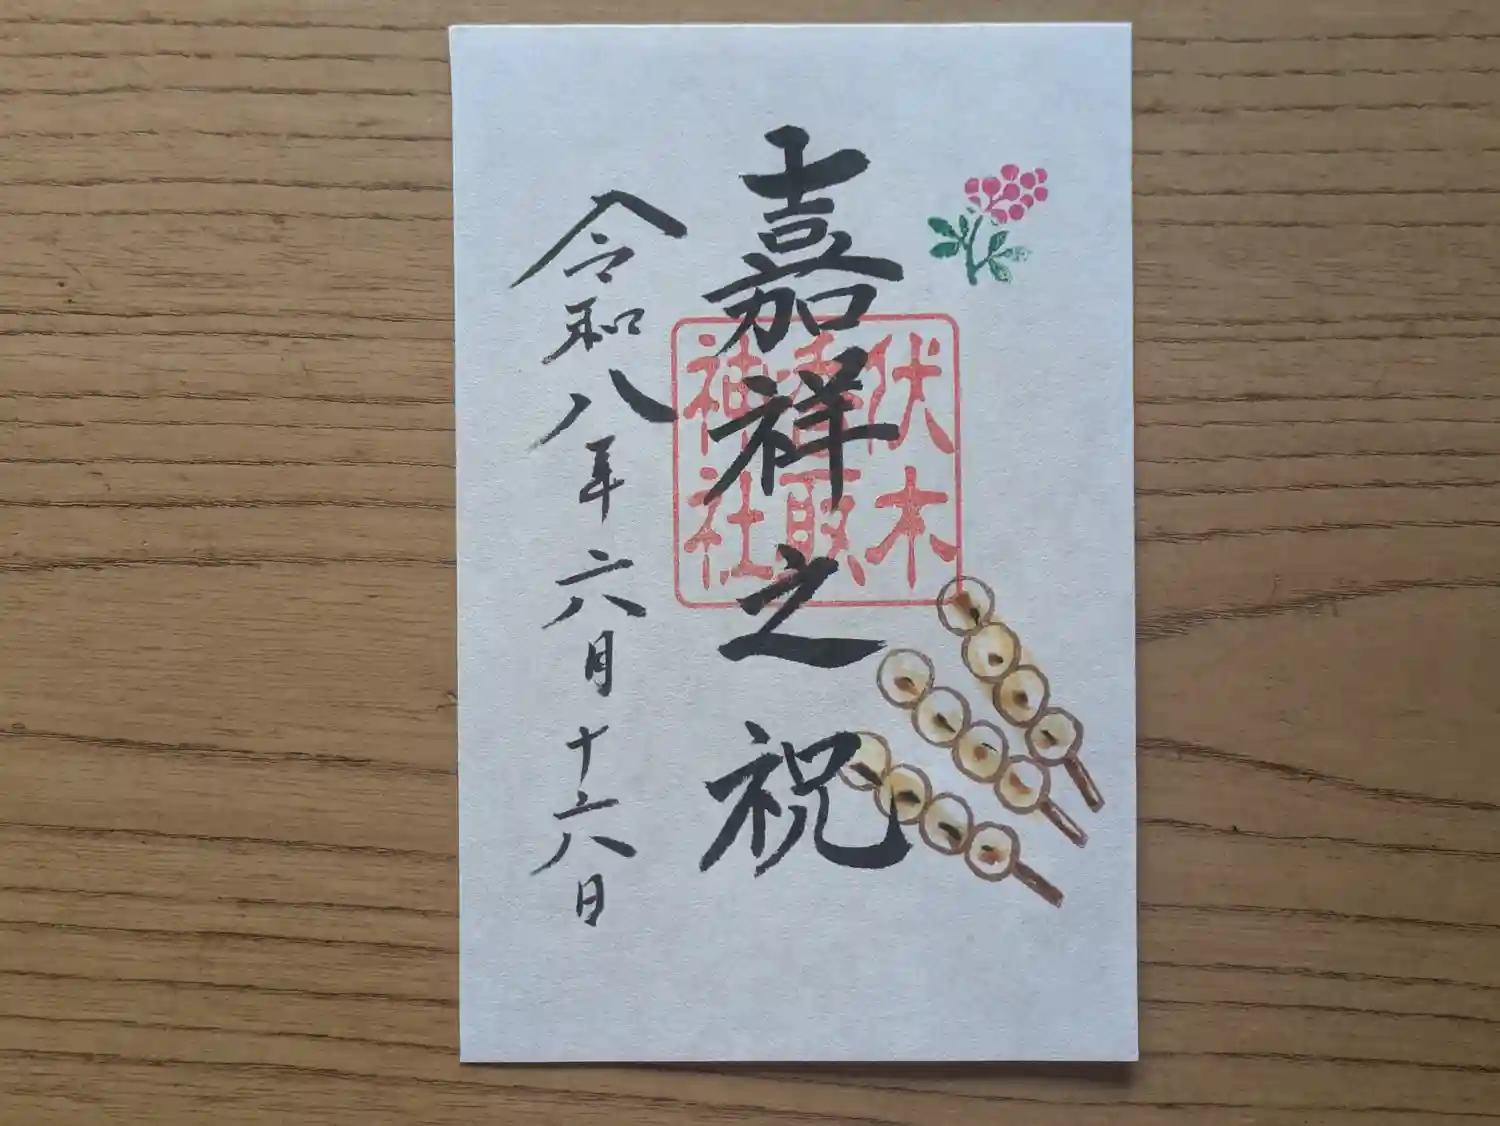 嘉祥之祝
伏木
香取
神社
令和八年六月十六日